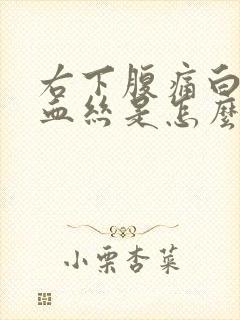 右下腹痛白
血丝是怎麽
小栗杏菜